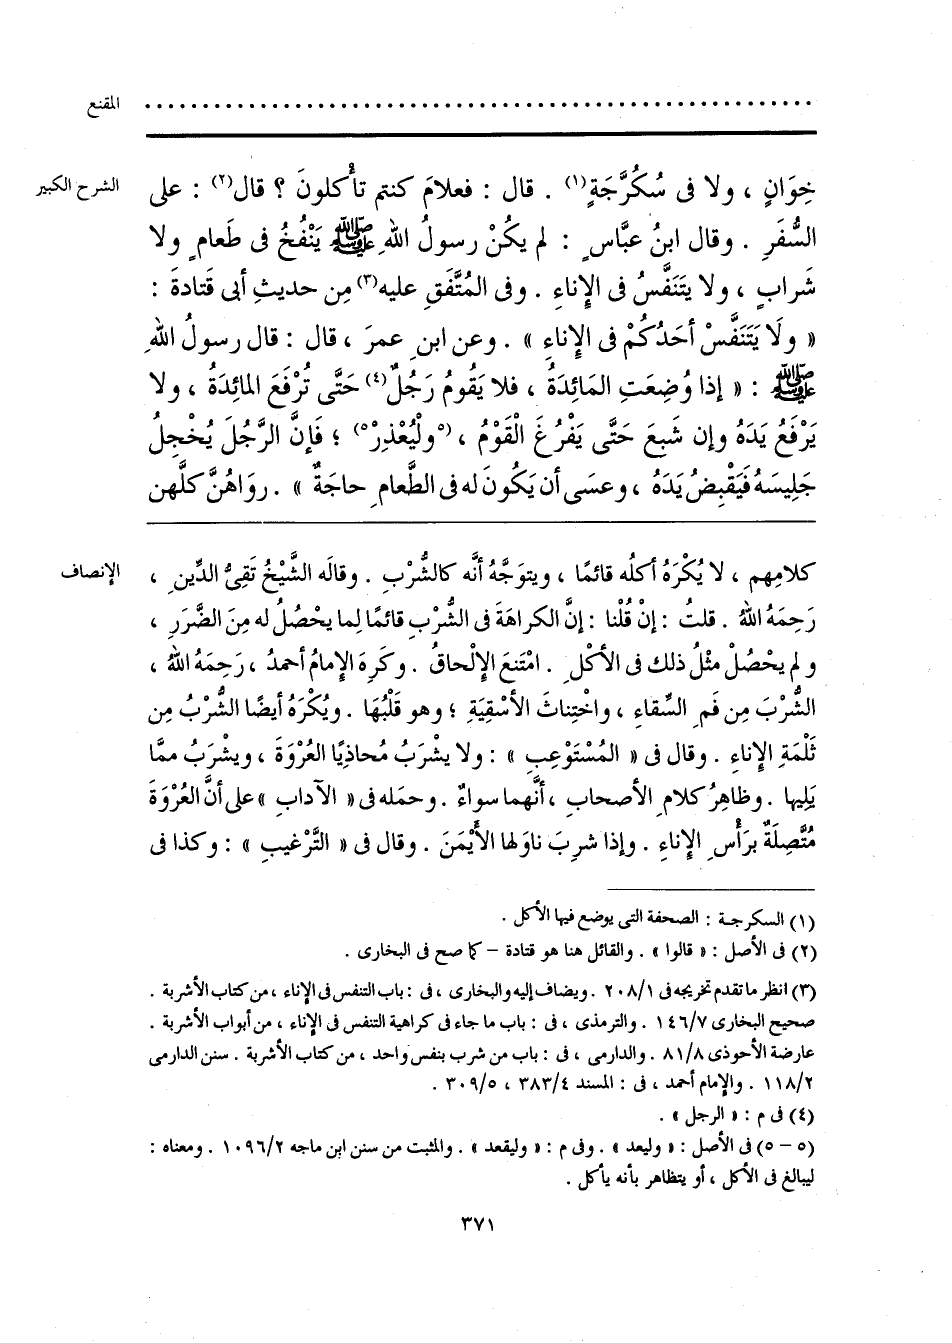 المقنع ............................................................
الشرح الكبير
خِوَانٍ ، ولا فى سُكُرَّجَةٍ(١) . قال : فعلامَ كنتم تأْكلونَ ؟ قال(٢) : على
السُّفَرِ . وقال ابنُ عبَّاسٍ : لم يكُنْ رسولُ اللهِ ﷺ يَنْفُخُ فى طَعامٍ ولا
شَرابٍ ، ولا يتَنَفَّسُ فى الإِناءِ . وفى المُتَّفَقِ عليه(٣) مِن حديثِ أبى قَتادةَ :
« ولَا يَتَنَفَّسْ أحَدُكُمْ فى الإِناءِ » . وعن ابنِ عمرَ ، قال : قال رسولُ اللهِ
ﷺ : « إذا وُضِعَتِ المَائِدَةُ ، فلا يَقُومُ رَجُلٌ(٤) حَتَّى تُرْفَعَ المائِدَةُ ، ولا
يَرْفَعُ يَدَهُ وإن شَبِعَ حَتَّى يَفْرُغَ القَوْمُ ، (٥ولْيُعْذِرْ٥) ؛ فَإنَّ الرَّجُلَ يُخْجِلُ
جَلِيسَهُ فَيَقْبِضُ يَدَهُ ، وعسَى أن يَكُونَ له فى الطَّعامِ حاجَةٌ » . روَاهُنَّ كلَّهن
الإنصاف
كلامِهم ، لا يُكْرَهُ أكلُه قائمًا ، ويتوَجَّهُ أنَّه كالشُّرْبِ . وقالَه الشَّيْخُ تَقِىُّ الدِّينِ ،
رَحِمَهُ اللهُ . قلتُ : إنْ قُلْنا : إنَّ الكراهَةَ فى الشُّرْبِ قائمًا لِما يحْصُلُ له مِنَ الضَّرَرِ ،
ولم يحْصُلْ مثْلُ ذلك فى الأكْلِ . امْتَنعَ الإلْحاقُ . وكَرِهَ الإمامُ أحمدُ ، رَحِمَهُ اللهُ ،
الشُّرْبَ مِن فَمِ السِّقاءِ ، واخْتِناثَ الأسْقِيَةِ ؛ وهو قَلْبُهَا . ويُكْرَهُ أيضًا الشُّرْبُ مِن
ثَلْمَةِ الإِناءِ . وقال فى « المُسْتَوْعِبِ » : ولا يشْرَبُ مُحاذِيًا العُرْوَةَ ، ويشْرَبُ ممَّا
يَلِيها . وظاهِرُ كلامِ الأصحابِ ، أنَّهما سواءٌ . وحمَله فى « الآدابِ » على أنَّ العُرْوَةَ
مُتَّصِلَةٌ برَأْسِ الإِناءِ . وإذا شرِبَ ناوَلها الأَيْمَنَ . وقال فى « التَّرْغيبِ » : وكذا فى
(١) السكرجة : الصحفة التى يوضع فيها الأكل .
(٢) فى الأصل : « قالوا » . والقائل هنا هو قتادة – كما صح فى البخارى .
(٣) انظر ما تقدم تخريجه فى ٢٠٨/١ . ويضاف إليه والبخارى ، فى : باب التنفس فى الإناء ، من كتاب الأشربة .
صحيح البخارى ١٤٦/٧ . والترمذى ، فى : باب ما جاء فى كراهية التنفس فى الإناء ، من أبواب الأشربة .
عارضة الأحوذى ٨١/٨ . والدارمى ، فى : باب من شرب بنفس واحد ، من كتاب الأشربة . سنن الدارمى
١١٨/٢ . والإمام أحمد ، فى : المسند ٣٨٣/٤ ، ٣٠٩/٥ .
(٤) فى م : « الرجل » .
(٥ – ٥) فى الأصل : « وليعد » . وفى م : « وليقعد » . والمثبت من سنن ابن ماجه ١٠٩٦/٢ . ومعناه :
ليبالغ فى الأكل ، أو يتظاهر بأنه يأكل .
٣٧١